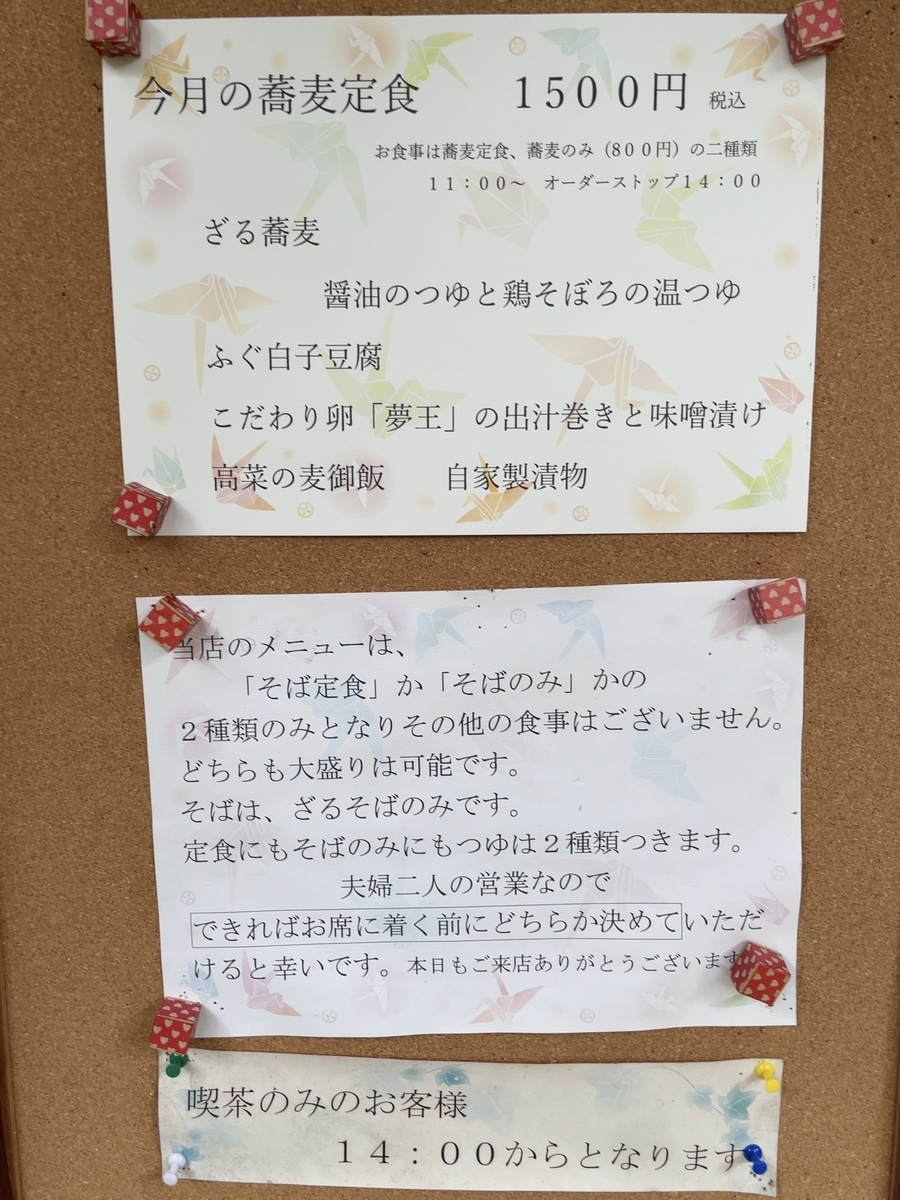 今月の蕎麦定食　　１５００円 税込
お食事は蕎麦定食、蕎麦のみ（８００円）の二種類
１１：００～　オーダーストップ１４：００
ざる蕎麦
醤油のつゆと鶏そぼろの温つゆ
ふぐ白子豆腐
こだわり卵「夢王」の出汁巻きと味噌漬け
高菜の麦御飯　　自家製漬物
当店のメニューは、
「そば定食」か「そばのみ」かの
２種類のみとなりその他の食事はございません。
どちらも大盛りは可能です。
そばは、ざるそばのみです。
定食にもそばのみにもつゆは２種類つきます。
夫婦二人の営業なので
できればお席に着く前にどちらか決めていただ
けると幸いです。本日もご来店ありがとうございます
喫茶のみのお客様
１４：００からとなります